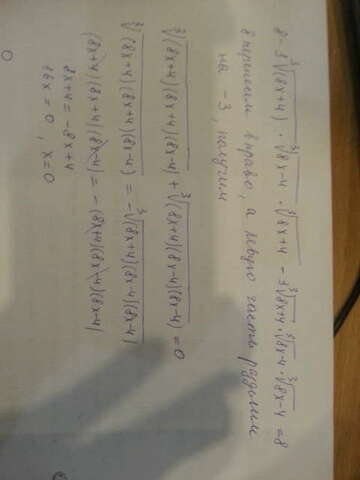 8-3∛(8x+4) · ∛8x-4 · ∛8x+4 - 3∛8x+4 · ∛8x-4 · ∛8x-4 = 8
8 перенесем вправо, а левую часть разделим
на -3, получим
∛(8x+4)(8x+4)(8x-4) + ∛(8x+4)(8x-4)(8x-4) = 0
∛(8x+4)(8x+4)(8x-4) = -∛(8x+4)(8x-4)(8x-4)
(8x+4)(8x+4)(8x-4) = -(8x+4)(8x-4)(8x-4)
8x+4 = -8x+4
16x = 0, x=0